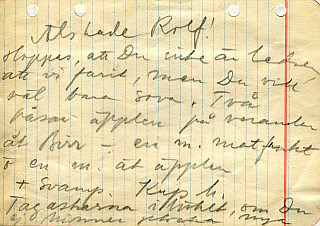 Älskade Rolf!
Hoppas, att Du inte är ledsen
att vi farit, men Du vill
väl bara sova. Två
påsar äpplen på verandan
åt Birr – en m. matfrukt
o en m. ät äpplen
+ svamp. Kyss M.
om Du